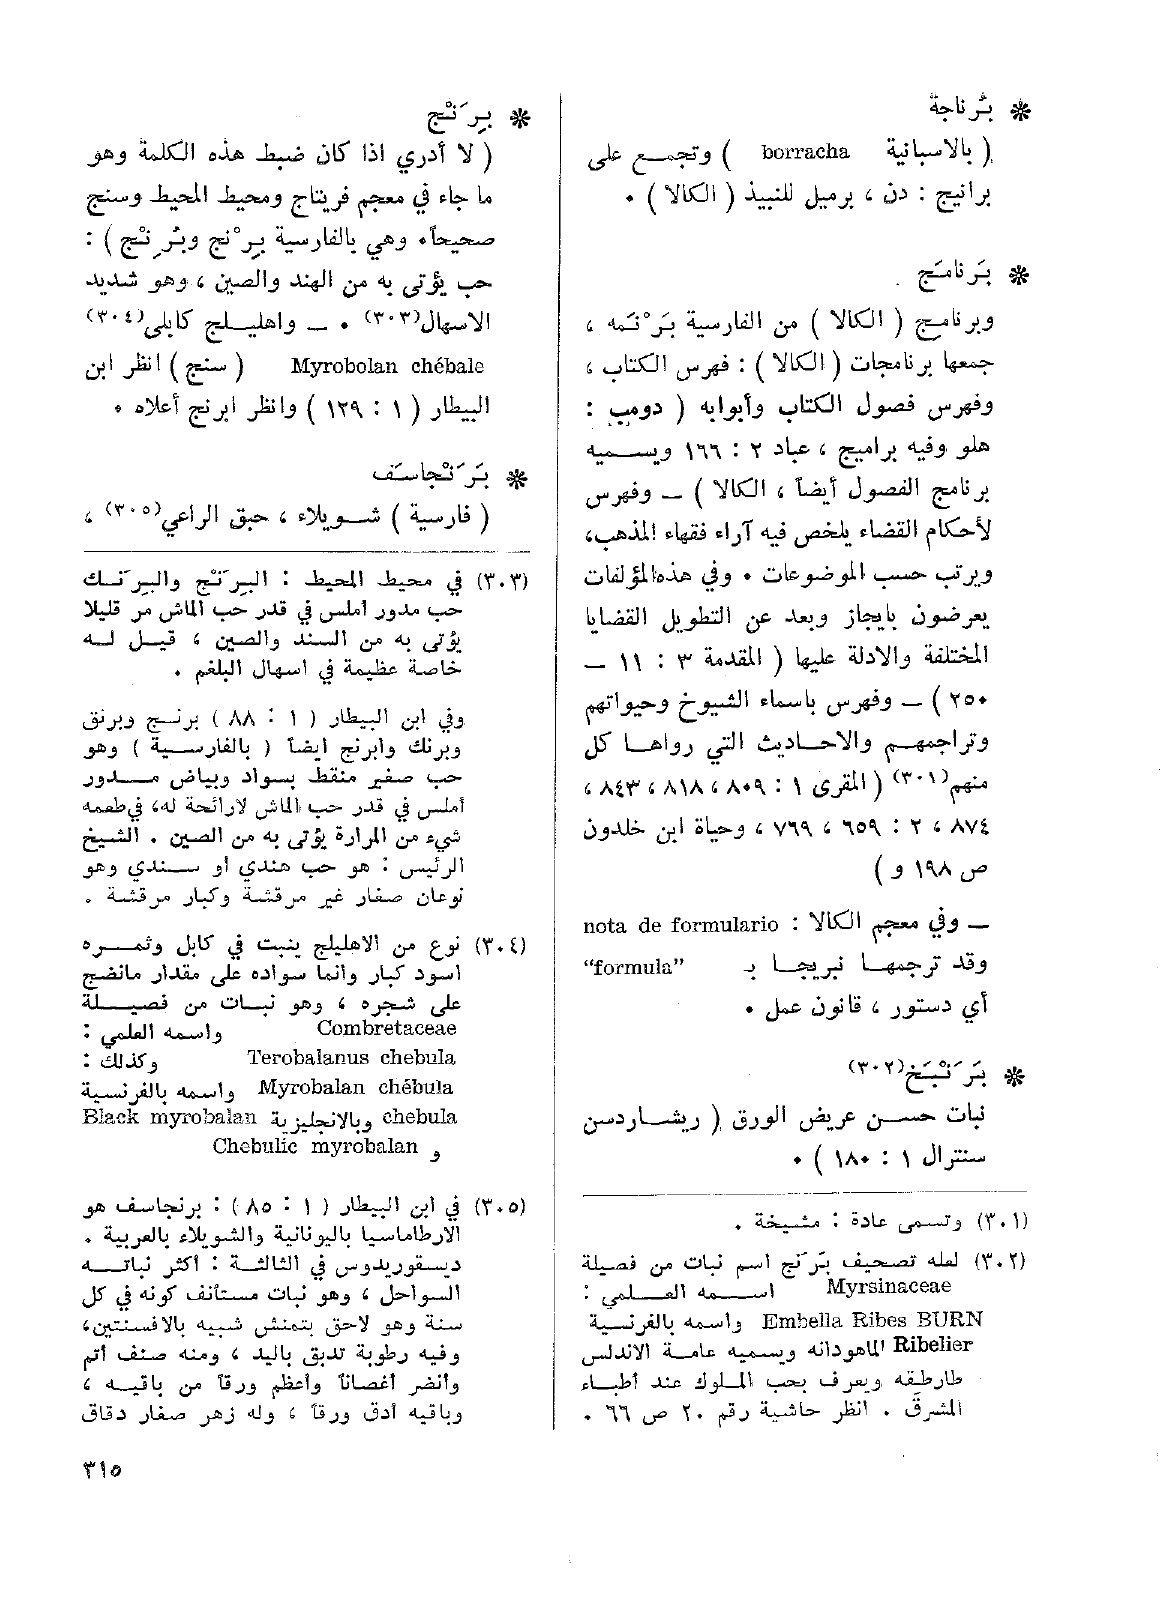 * بُرناجة
( بالاسبانية borracha ) وتجمع على
برانيج : دن ، برميل للنبيذ ( الكالا ) .
* بَرنامَج
وبرنامج ( الكالا ) من الفارسية بَرْنَمه ،
جمعها برنامجات ( الكالا ) : فهرس الكتاب ،
وفهرس فصول الكتاب وأبوابه ( دومب :
هلو وفيه براميج ، عباد ٢ : ١٦٦ ويسميه
برنامج الفصول أيضاً ، الكالا ) – وفهرس
لأحكام القضاء يلخص فيه آراء فقهاء المذهب،
ويرتب حسب الموضوعات . وفي هذه المؤلفات
يعرضون بايجاز وبعد عن التطويل القضايا
المختلفة والادلة عليها ( المقدمة ٣ : ١١ –
٢٥٠ ) – وفهرس باسماء الشيوخ وحيواتهم
وتراجمهم والاحاديث التي رواها كل
منهم(٣٠١) ( المقرى ١ : ٨٠٩ ، ٨١٨ ، ٨٤٣ ،
٨٧٤ ، ٢ : ٦٥٩ ، ٧٦٩ ، وحياة ابن خلدون
ص ١٩٨ و )
– وفي معجم الكالا : nota de formulario
وقد ترجمها نبريجا بـ “formula”
أي دستور ، قانون عمل .
* بَرَنْبَخ(٣٠٢)
نبات حسن عريض الورق ( ريشاردسن
سنترال ١ : ١٨٠ ) .
(٣٠١) وتسمى عادة : مشيخة .
(٣٠٢) لعله تصحيف بَرَنج اسم نبات من فصيلة
Myrsinaceae اسمه العلمي :
Embella Ribes BURN واسمه بالفرنسية
Ribelier الماهودانه ويسميه عامة الاندلس
طارطقه ويعرف بحب الملوك عند أطباء
الشرق . انظر حاشية رقم ٢٠ ص ٦٦ .
* بِرَنْج
( لا أدري اذا كان ضبط هذه الكلمة وهو
ما جاء في معجم فريتاج ومحيط المحيط وسنج
صحيحاً. وهي بالفارسية بِرْنج وبُرِنْج ) :
حب يؤتى به من الهند والصين ، وهو شديد
الاسهال(٣٠٣) . – واهليلج كابلى(٣٠٤)
Myrobolan chébale ( سنج ) انظر ابن
البيطار ( ١ : ١٢٩ ) وانظر ابرنج أعلاه .
* بَرَنْجاسَف
( فارسية ) شويلاء ، حبق الراعي(٣٠٥) ،
(٣٠٣) في محيط المحيط : البِرَنْج والبِرَنك
حب مدور أملس في قدر حب الماش مر قليلا
يؤتى به من السند والصين ، قيل له
خاصة عظيمة في اسهال البلغم .
وفي ابن البيطار ( ١ : ٨٨ ) برنج وبرنق
وبرنك وأبرنج أيضاً ( بالفارسية ) وهو
حب صغير منقط بسواد وبياض مدور
أملس في قدر حب الماش لارائحة له، في طعمه
شيء من المرارة يؤتى به من الصين . الشيخ
الرئيس : هو حب هندي أو سندي وهو
نوعان صغار غير مرقشة وكبار مرقشة .
(٣٠٤) نوع من الاهليلج ينبت في كابل وثمره
اسود كبار وانما سواده على مقدار مانضج
على شجره ، وهو نبات من فصيلة
Combretaceae واسمه العلمي :
Terobalanus chebula وكذلك :
Myrobalan chébula واسمه بالفرنسية
chebula وبالانجليزية Black myrobalan
و Chebulic myrobalan
(٣٠٥) في ابن البيطار ( ١ : ٨٥ ) : برنجاسف هو
الارطاماسيا باليونانية والشويلاء بالعربية .
ديسقوريدوس في الثالثة : أكثر نباته
السواحل ، وهو نبات مستأنف كونه في كل
سنة وهو لاحق بتمنش شبيه بالافسنتين،
وفيه رطوبة تدبق باليد ، ومنه صنف أتم
وأنضر أغصاناً وأعظم ورقاً من باقيه ،
وباقيه أدق ورقاً ، وله زهر صغار دقاق
٣١٥